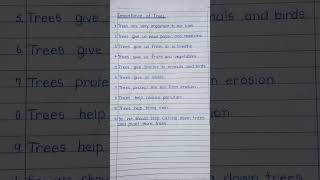 Importance of Trees
1. Trees are very important to our lives
2. Trees give us wood, paper, and medicine
3. Trees give us fresh air to breathe
4. Trees give us fruits and vegetables
5. Trees give shelter to animals and birds
6. Trees give us shade.
7. Trees protect the soil from erosion
8. Trees help reduce pollution
9. Trees help bring rain.
10. So we should stop cutting down trees
and plant more trees.
5. Trees give
als and birds
6. Trees give
7. Trees prote
m erosion
8. Trees help
9. Trees help
down trees